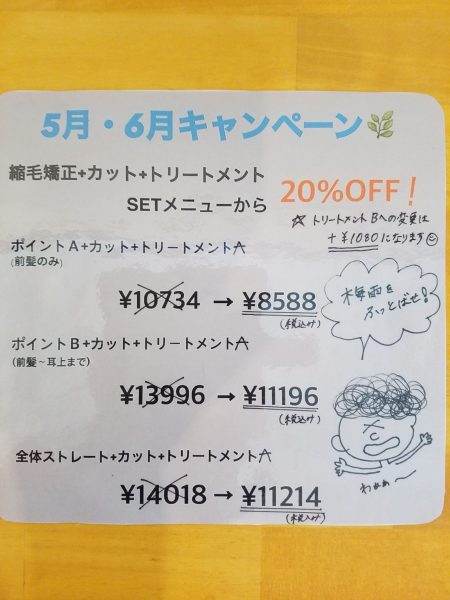 5月・6月キャンペーン
縮毛矯正+カット+トリートメント
SETメニューから
20%OFF!
☆ トリートメントBへの変更は
+¥1080になります
ポイントA+カット+トリートメントA
(前髪のみ)
¥10734 → ¥8588
(税込み)
梅雨を
ふっとばせ!
ポイントB+カット+トリートメントA
(前髪~耳上まで)
¥13996 → ¥11196
(税込み)
全体ストレート+カット+トリートメントA
¥14018 → ¥11214
(税込み)
わぁぁ〜